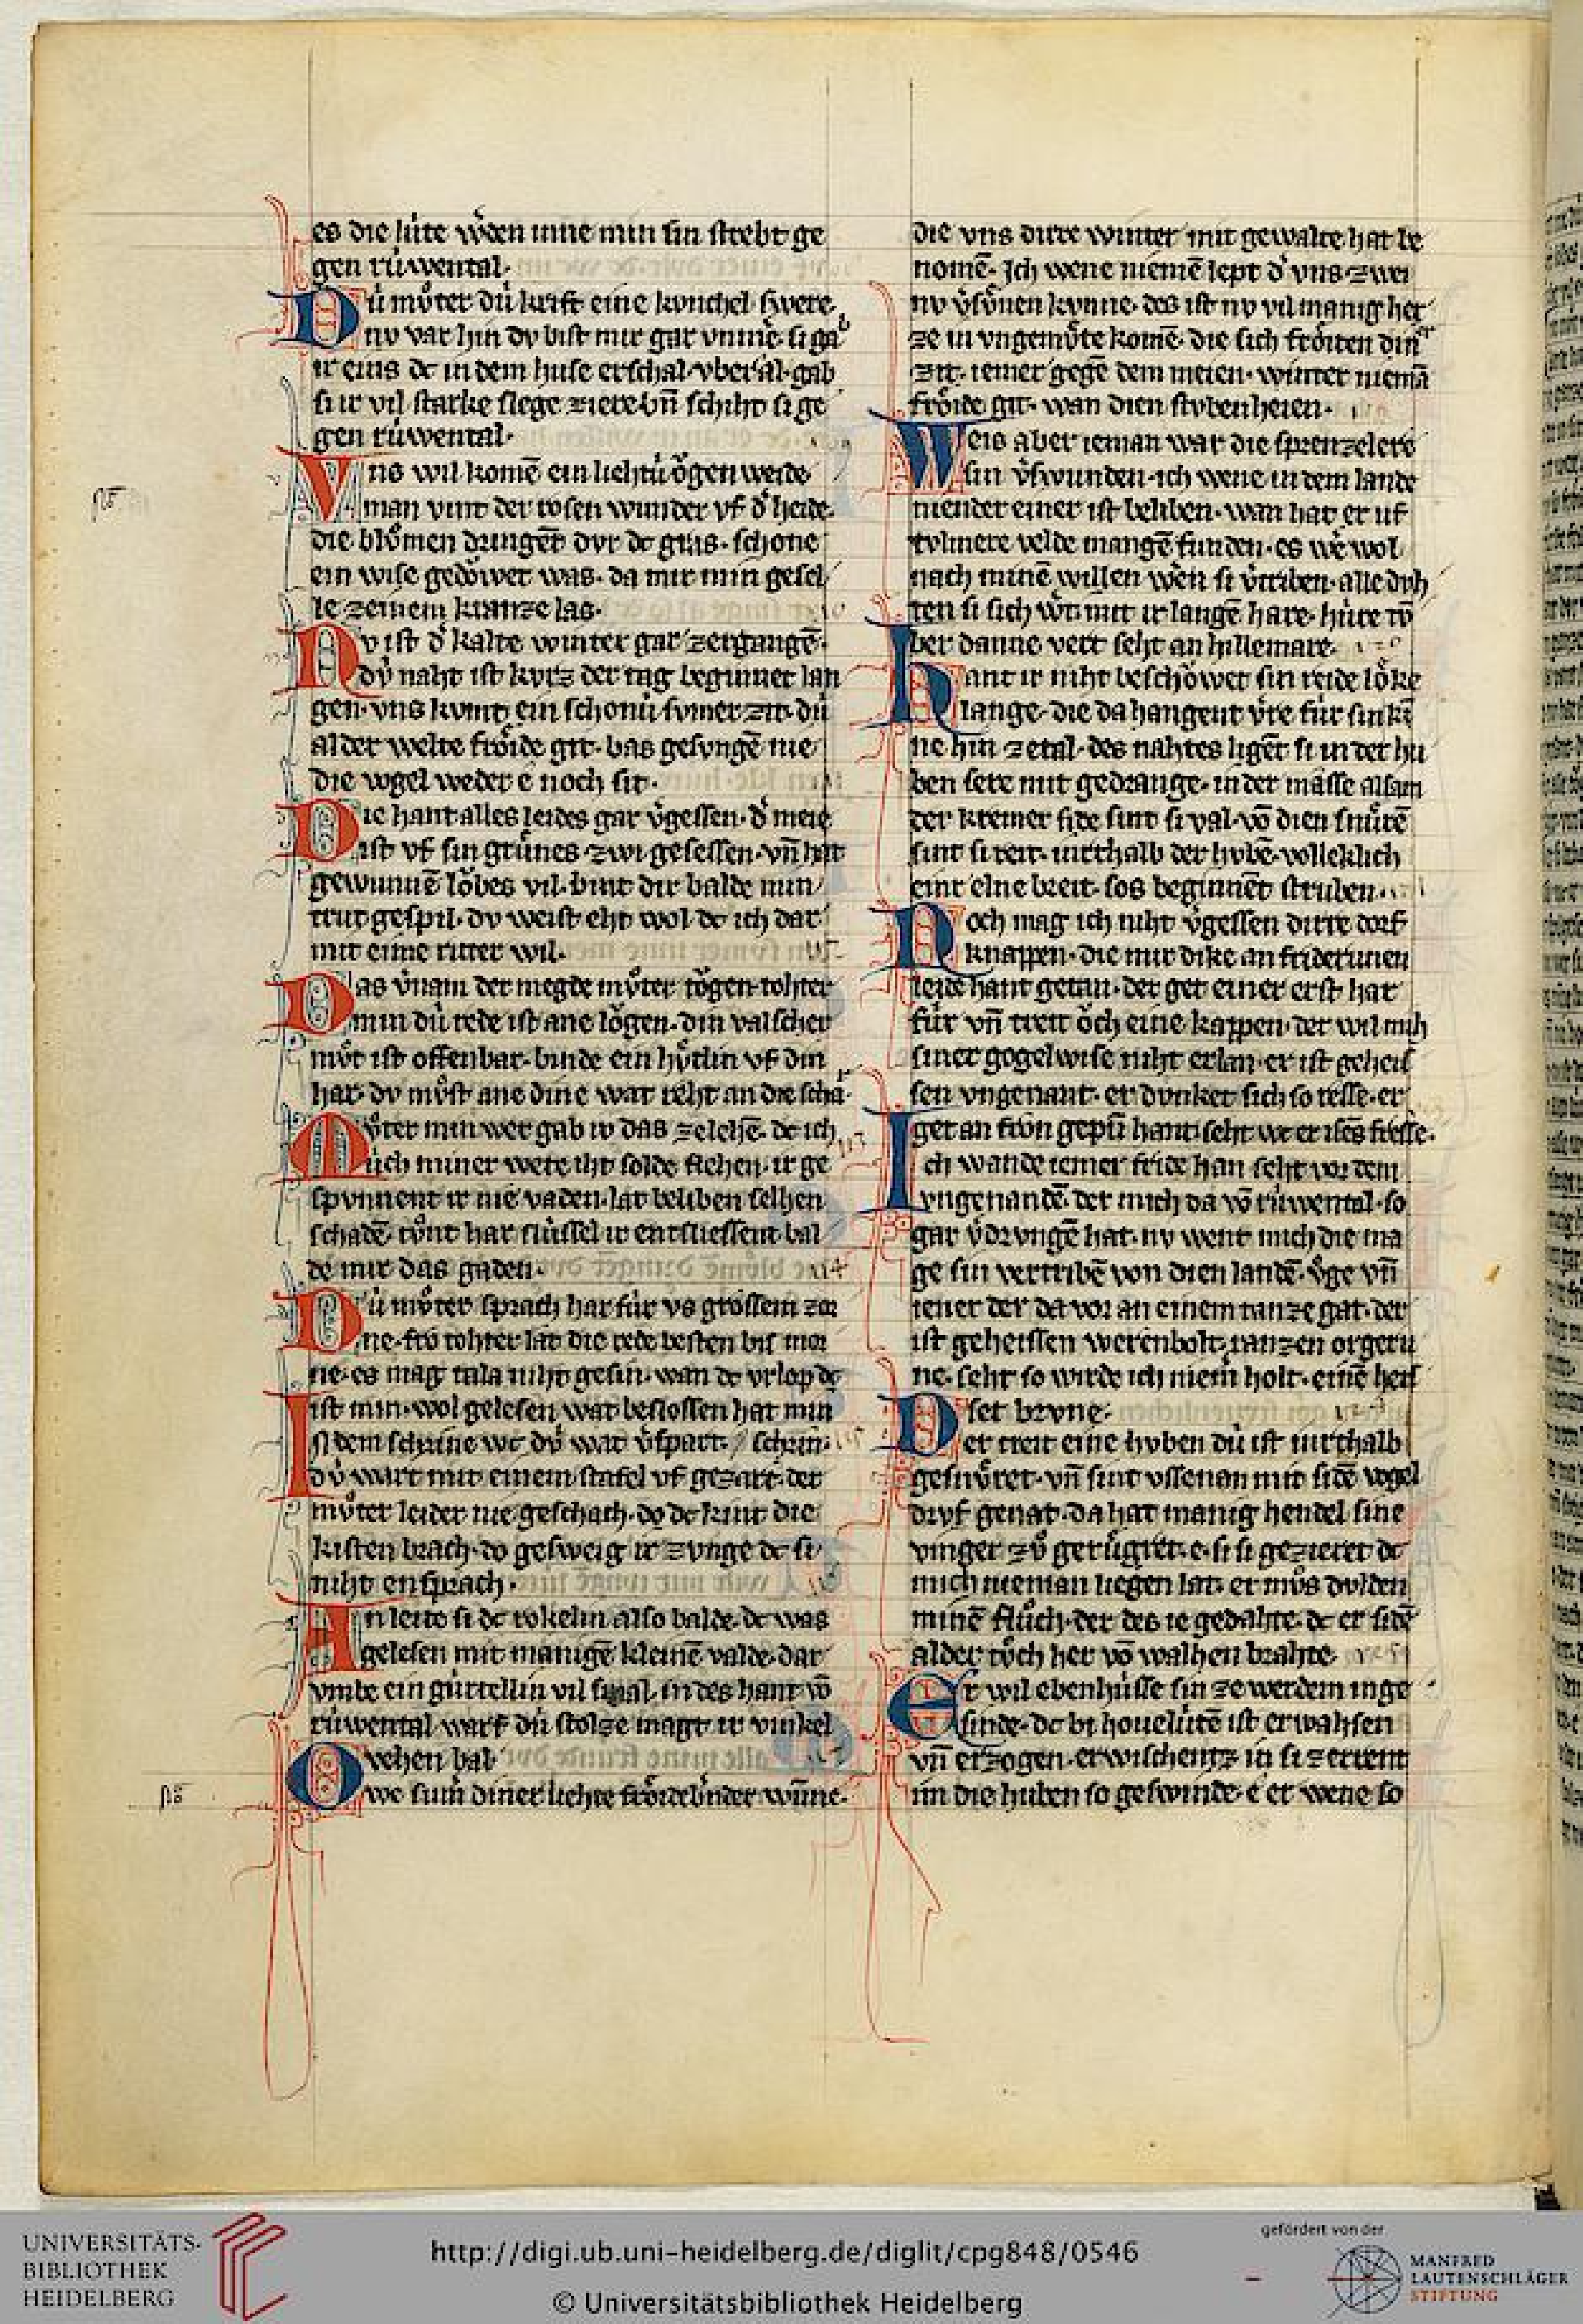 es die lúte wˀden inne min sin strebt ge
gen rúwental.
Dú mv̊ter dú kreft eine kvnchel swere.
nv var hin dv bist mir gar vnmeˀ. si gab
ir eins dc in dem huse erschal vberal. gab
si ir vil starke slege ziere vn̄ schiht si ge
gen rúwental.
Vns wil komē ein liehtú ǒgen weide
man vint der rosen wunder vf dˀ heide.
die blůmen dringēt dvr dc gras. schone
ein wise getǒwet was. da mir min gesel
le zeinem kranze las.
Nv ist dˀ kalte winter gar zergangē.
dú naht ist kvrz der tag beginnet lan
gen. vns kvmt ein schonú svmer zit. dú
al der welte frǒide git. bas gesvngē nie
die vogel weder e noch sit.
Die hant alles leides gar vˀgessen. dˀ meie
ist vf sin grůnes zwi gesessen. vn̄ hat
gewunnē lǒbes vil. bint dir balde min
trut gespil. dv weist eht wol dc ich dar
mit eime ritter wil.
Das vˀnam der megde mv̊ter tǒgen. tohter
min dú rede ist ane lǒgen. din valscher
mv̊t ist offenbar. binde ein hv̊tlin vf din
har. dv mv̊st ane dine wat reht an die schar.
Mv̊ter min wer gab iv das zelehē. dc ich
úch miner wete iht solde flehen. ir ge
spvnnent ir nie vaden. lat beliben selhen
schadē. tv̊nt har slússel ir entsliessent bal
de mir das gaden.
Dú mv̊ter sprach har fúr vs grossem zor
ne. frǒ tohter lat die rede besten bis mor
ne. es mag tala niht gesin. wan dc vrlop dc
ist min. wol gelesen wat beslossen hat min
In dem schrine wc dú wat vˀspart. schrin.
dú wart mit einem stafel vf gezart. der
mv̊ter leider nie geschach. do dc kint die
kisten brach. do gesweig ir zvnge dc si
niht ensprach.
An leite si dc rokelin also balde. dc was
gelesen mit manigē kleinē valde. dar
vmbe ein gúrtellin vil smal. in des hant vō
rúwental warf dú stolze magt ir vinkel
vehen bal
Owe sumˀ diner liehte frǒidebernder wūne.
die vns dirre winter mit gewalte hat be
nomē. Ich wene niemē lept dˀ vns zwei
nv vˀsv̊nen kvnne. des ist nv vil manig her
ze in vngemv̊te komē. die sich frǒiten diner
zit. iemer gegē dem meien. winter niemā
frǒide git. wan dien stvbenheien.
Weis aber ieman war die sprenzelere
sin vˀswunden. ich wene in dem lande
niender einer ist beliben. wan hat er uf
tvlnere velde mangē funden. es weˀ wol
nach minē willen weˀn si vˀtriben. alle dvh
ten si sich weˀt mit ir langē hare. húre tō
ber danne vert seht an hillemare.
Hant ir niht beschǒwet sin reide lǒke
lange. die da hangent vˀre fúr sin kī
ne hin zetal. des nahtes ligēt si in der hu
ben sere mit gedrange. in der masse alsam
der kremer side sint si val. vō dien snv̊rē
sint si reit. inrthalb der hvbē. volleklich
einr elne breit. sos beginnēt struben.
Noch mag ich niht vˀgessen dirre dorf
knappen. die mir dike an friderunen
leide hant getan. der get einer erst har
fúr vn̄ treit ǒch eine kappen. der wil mih
siner gogelwise niht erlan. er ist geheis
sen vngenant. er dvnket sich so resse. er
get an fron gepúˀ hant. seht wc er isēs fresse.
Ich wande iemer fride han seht vor dem
vngenandē. der mich da vō rúwental so
gar vˀdrvngē hat. nv went mich die ma
ge sin vertribē von dien landē. v̊ge vn̄
iener der da vor an einem tanze gat. der
ist geheissen werēnbolt. ranzen orgern
ne. seht so wirde ich niem̄ holt. einē heis
set brvne.
Der treit eine hvben dú ist inrthalb
gesnv̊ret. vn̄ sint vssenan mit sidē vogel
drvf genat. da hat manig hendel sine
vinger zv̊ gerůgret. e si si gezieret dc
mich nieman liegen lat. er mv̊s dvlden
minē flůch. der des ie gedahte. dc er sidē
alder tůch her vō walhen brahte.
Er wil ebenhússe sin ze werdem inge
sinde. dc bi hovelútē ist erwahsen
vn̄ erzogen. erwischentz in si zerrent
im die huben so geswinde. e er wene so
UNIVERSITÄTS-
BIBLIOTHEK
HEIDELBERG
http://digi.ub.uni-heidelberg.de/diglit/cpg848/0546
© Universitätsbibliothek Heidelberg
gefördert von der
MANFRED
LAUTENSCHLÄGER
STIFTUNG